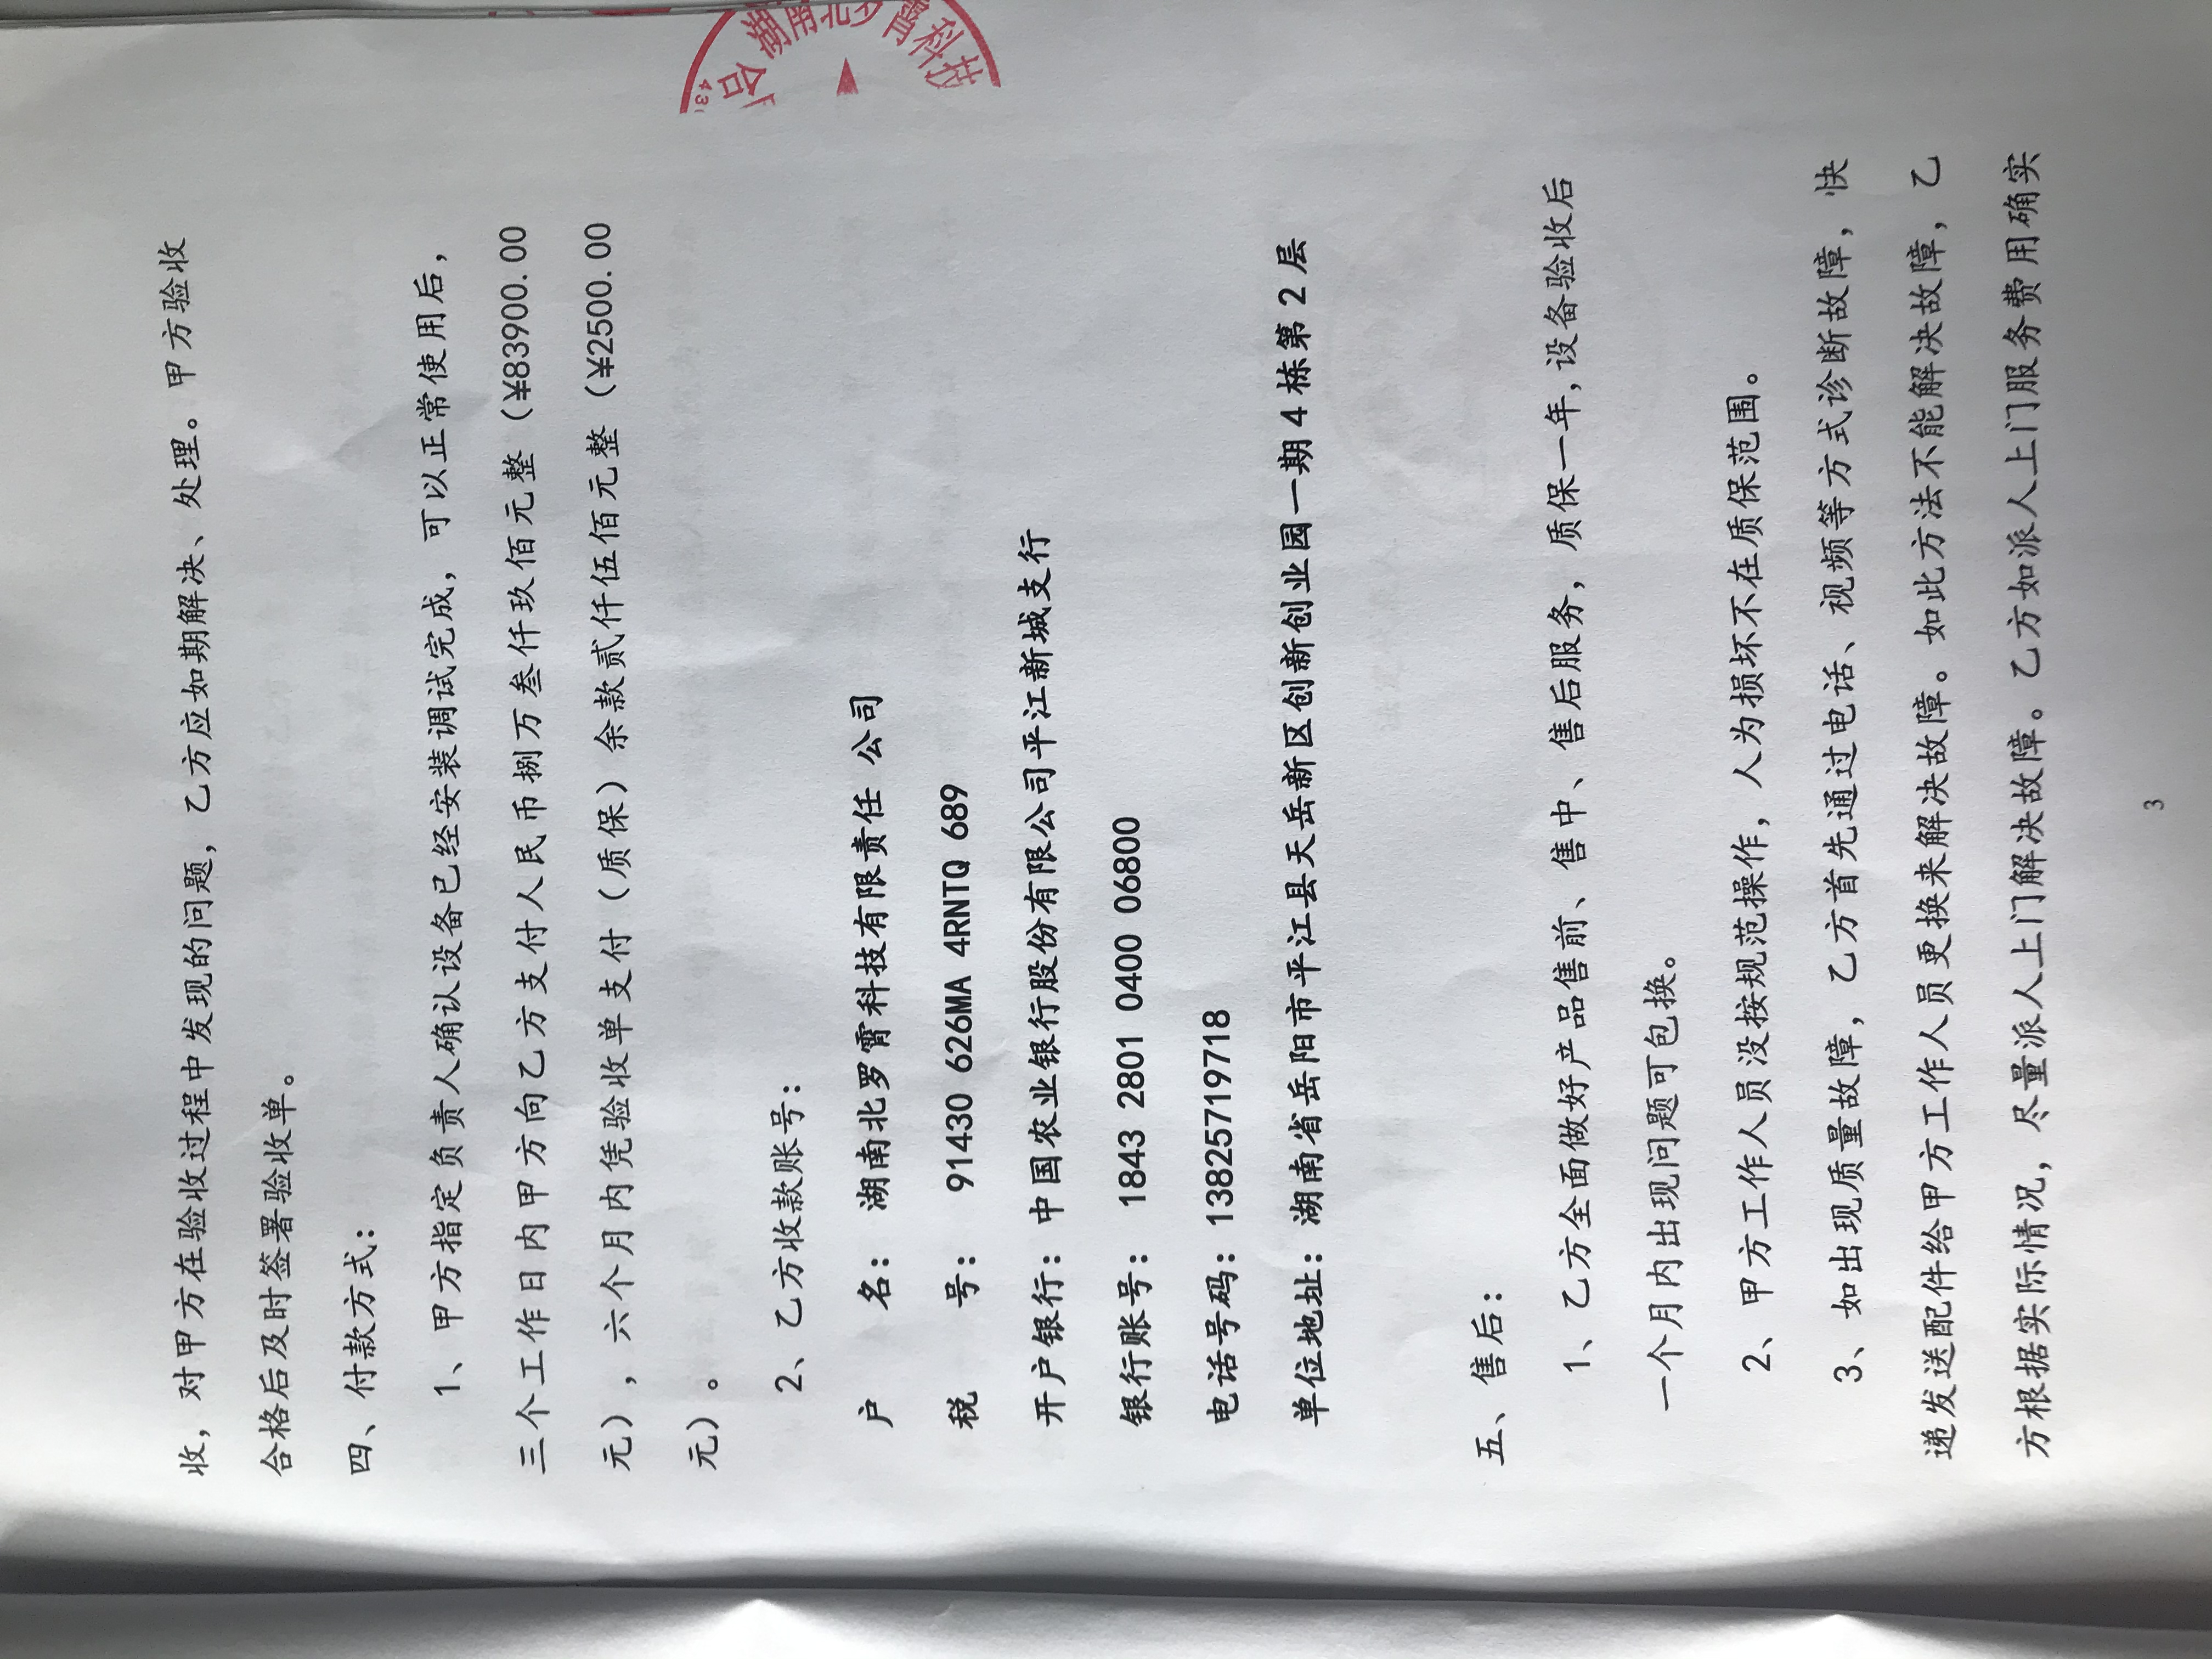 收，对甲方在验收过程中发现的问题，乙方应如期解决、处理。甲方验收
合格后及时签署验收单。
四、付款方式：
1、甲方指定负责人确认设备已经安装调试完成，可以正常使用后，
三个工作日内甲方向乙方支付人民币捌万叁仟玖佰元整（¥83900.00
元），六个月内凭验收单支付（质保）余款贰仟伍佰元整（¥2500.00
元）。
2、乙方收款账号：
户 名：湖南北罗霄科技有限责任 公司
税 号：91430 626MA 4RNTQ 689
开户银行：中国农业银行股份有限公司平江新城支行
银行账号：1843 2801 0400 06800
电话号码：13825719718
单位地址：湖南省岳阳市平江县天岳新区创新创业园一期 4 栋第 2 层
五、售后：
1、乙方全面做好产品售前、售中、售后服务，质保一年,设备验收后
一个月内出现问题可包换。
2、甲方工作人员没按规范操作，人为损坏不在质保范围。
3、如出现质量故障，乙方首先通过电话、视频等方式诊断故障，快
递发送配件给甲方工作人员更换来解决故障。如此方法不能解决故障，乙
方根据实际情况，尽量派人上门解决故障。乙方如派人上门服务费用确实
3
湖南北
科技